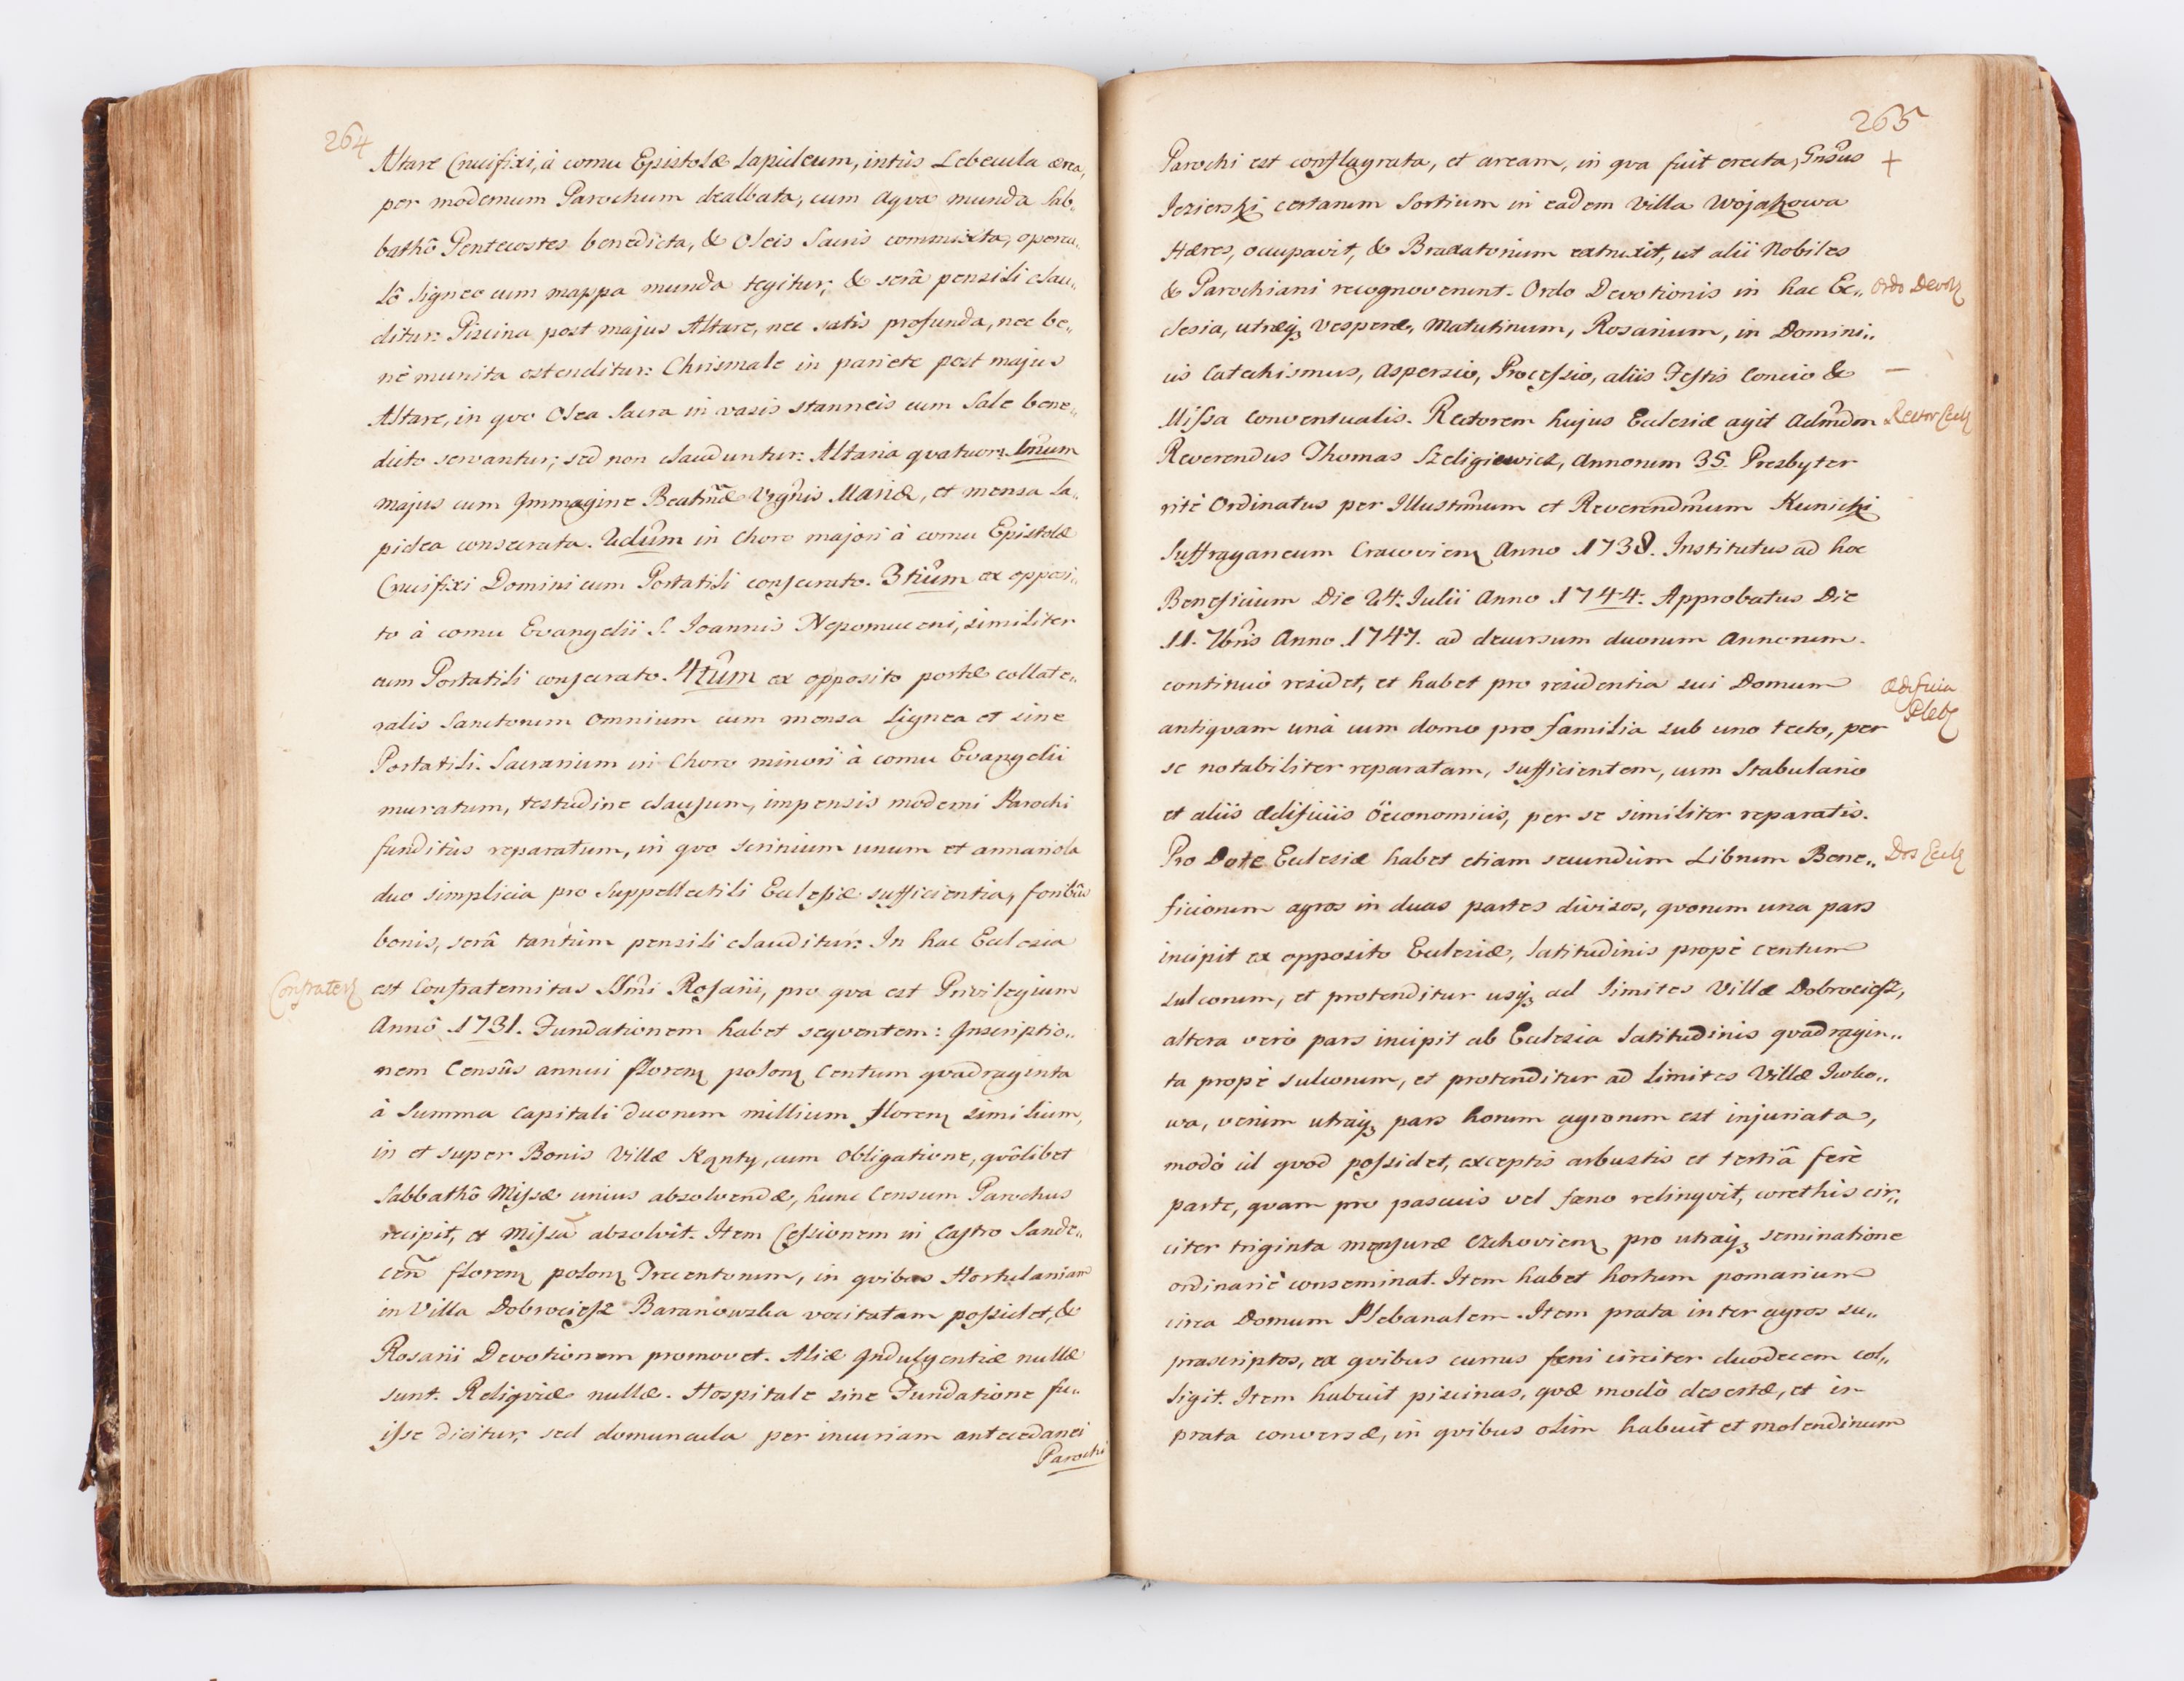 264
Altare Crucifixi, à cornu Epistolæ Lapideum, intùs Lebecula ærea,
per modernum Parochum dealbata, cum aqva munda Sab„
bathô Pentecostes benedicta, & Oleis Sacris commixta, opercu„
lô ligneo cum mappa munda tegitur; & serâ pensili clau„
ditur: Piscina post majus Altare, nec satis profunda, nec be„
nè munita ostenditur: Chrismale in pariete post majus
Altare, in qvo Olea Sacra in vasis stanneis cum Sale bene„
dicto servantur; sed non clauduntur: Altaria qvatuor: 1mum
majus cum Immagine Beatmæ Vrgnis Mariæ, et mensa la„
pidea consecrata. 2dum in Choro majori à cornu Epistolæ
Crucifixi Domini cum Portatili consecrato. 3tium ex opposi„
to à cornu Evangelii S. Ioannis Nepomuceni, similiter
cum Portatili consecrato. 4tum ex opposito portæ collate„
ralis Sanctorum Omnium cum mensa lignea et sine
Portatili. Sacrarium in Choro minori à cornu Evangelii
muratum, testudine clausum, impensis moderni Parochi
funditùs reparatum, in qvo scrinium unum et armariola
duo simplicia pro Suppellectili Ecclesiæ sufficientia, foribûs
bonis, serâ tantùm pensili clauditur: In hac Ecclesia
Confrater
est Confraternitas SSmi Rosarii, pro qva est Privilegium
Annô 1731. Fundationem habet seqventem: Inscriptio„
nem Censûs annui floren polon Centum qvadraginta
à Summa Capitali duorum millium floren similium,
in et super Bonis Villæ Kąnty, cum Obligatione, qvôlibet
Sabbathô Missæ unius absolvendæ, hunc Censum Parochus
recipit, et Missã absolvit. Item Cessionem in Castro Sande„
cen floren polon Trecentorum, in qvibus Hortulaniam
in Villa Dobrociesz Baranowska vocitatam possidet, &
Rosarii Devotionem promovet. Aliæ Indulgentiæ nullæ
sunt. Reliqviæ nullæ. Hospitale sine Fundatione fu„
isse dicitur; sed domuncula per incuriam antecedanei
Parochi
265
Parochi est conflagrata, et aream, in qva fuit erecta, Gnsus +
Iezierski certarum Sortium in eadem Villa Wojakowa
Hæres, occupavit, & Braxatorium extruxit, ut alii Nobiles
& Parochiani recognoverunt. Ordo Devotionis in hac Ec„
Ordo Devon
clesia, utræq; Vesperæ, Matutinum, Rosarium, in Domini„
cis Catechismus, Aspersio, Processio, aliis Festis Concio & —
Missa Conventualis. Rectorem hujus Ecclesiæ agit Admdm
Rector Eccl
Reverendus Thomas Szeligiewicz, Annorum 35. Presbyter
ritè Ordinatus per Illustrmum et Reverendmum Kunicki
Suffraganeum Cracovien Anno 1738. Institutus ad hoc
Beneficium Die 24. Iulii Anno 1744. Approbatus Die
11. 7bris Anno 1747. ad decursum duorum Annorum.
continuò residet, et habet pro residentia sui Domum
Ædificia
Pleb
antiqvam unà cum domo pro familia sub uno tecto, per
se notabiliter reparatam, sufficientem, cum Stabulario
et aliis ædificiis öeconomicis, per se similiter reparatis.
Pro Dote Ecclesiæ habet etiam secundùm Librum Bene„
Dos Eccl
ficiorum agros in duas partes divisos, qvorum una pars
incipit ex opposito Ecclesiæ, latitudinis propè Centum
sulcorum, et protenditur usq; ad limites Villæ Dobrociesz,
altera verò pars incipit ab Ecclesia latitudinis qvadragin„
ta propè sulcorum, et protenditur ad limites Villæ Iwko„
wa, verùm utraq; pars horum agrorum est injuriata,
modò id quod possidet, exceptis arbustis et tertiâ ferè
parte, qvam pro pascuis vel fæno relinqvit, corethis cir„
citer triginta mensuræ Czchovien pro utraq; seminatione
ordinariè conseminat. Item habet hortum pomarium
circa Domum Plebanalem. Item prata inter agros su„
prascriptos, ex qvibus currus fæni circiter duodecem col„
ligit. Item habuit piscinas, qvæ modò desertæ, et in
prata conversæ, in qvibus olim habuit et molendinum